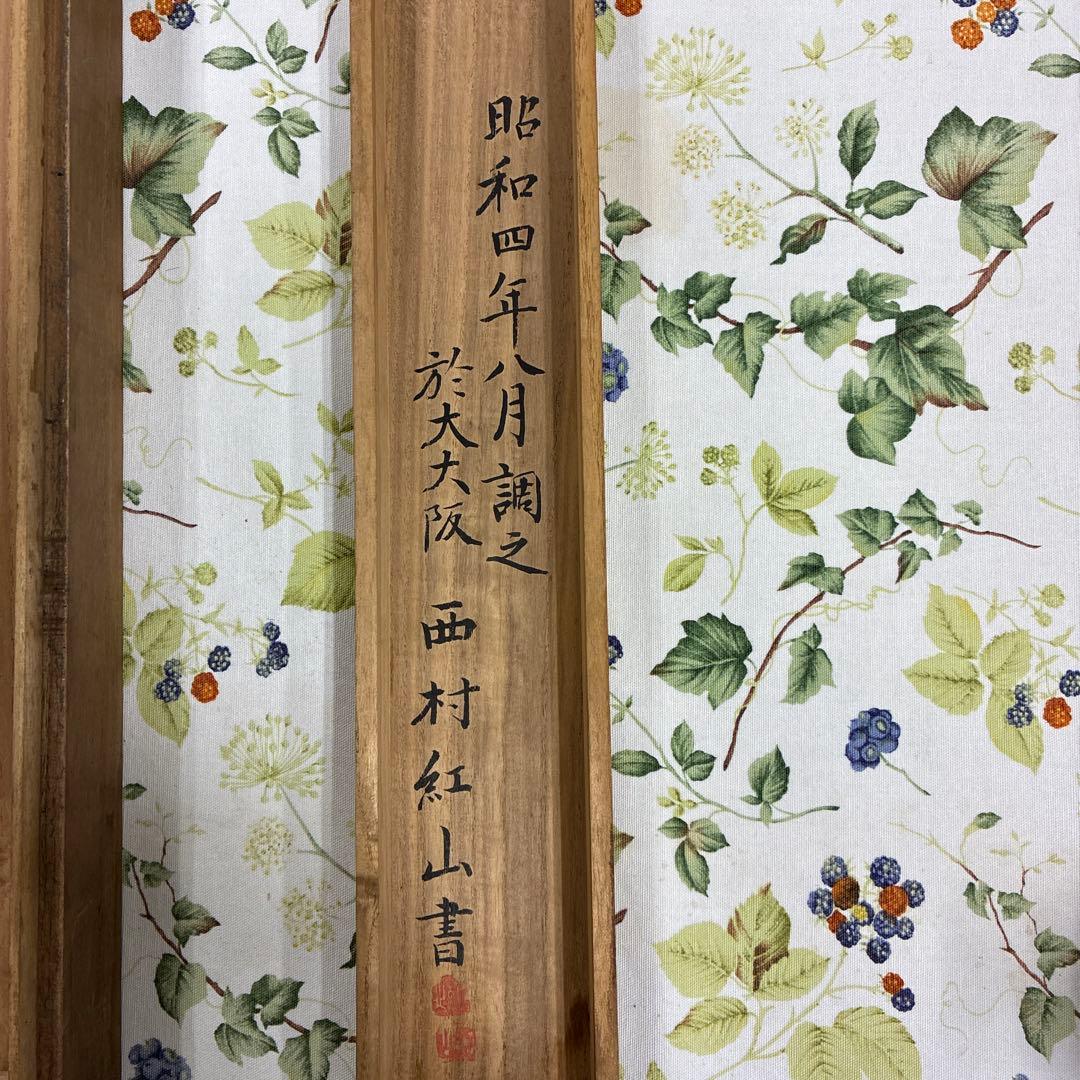 昭和四年八月調之
於大大阪 西村紅山書